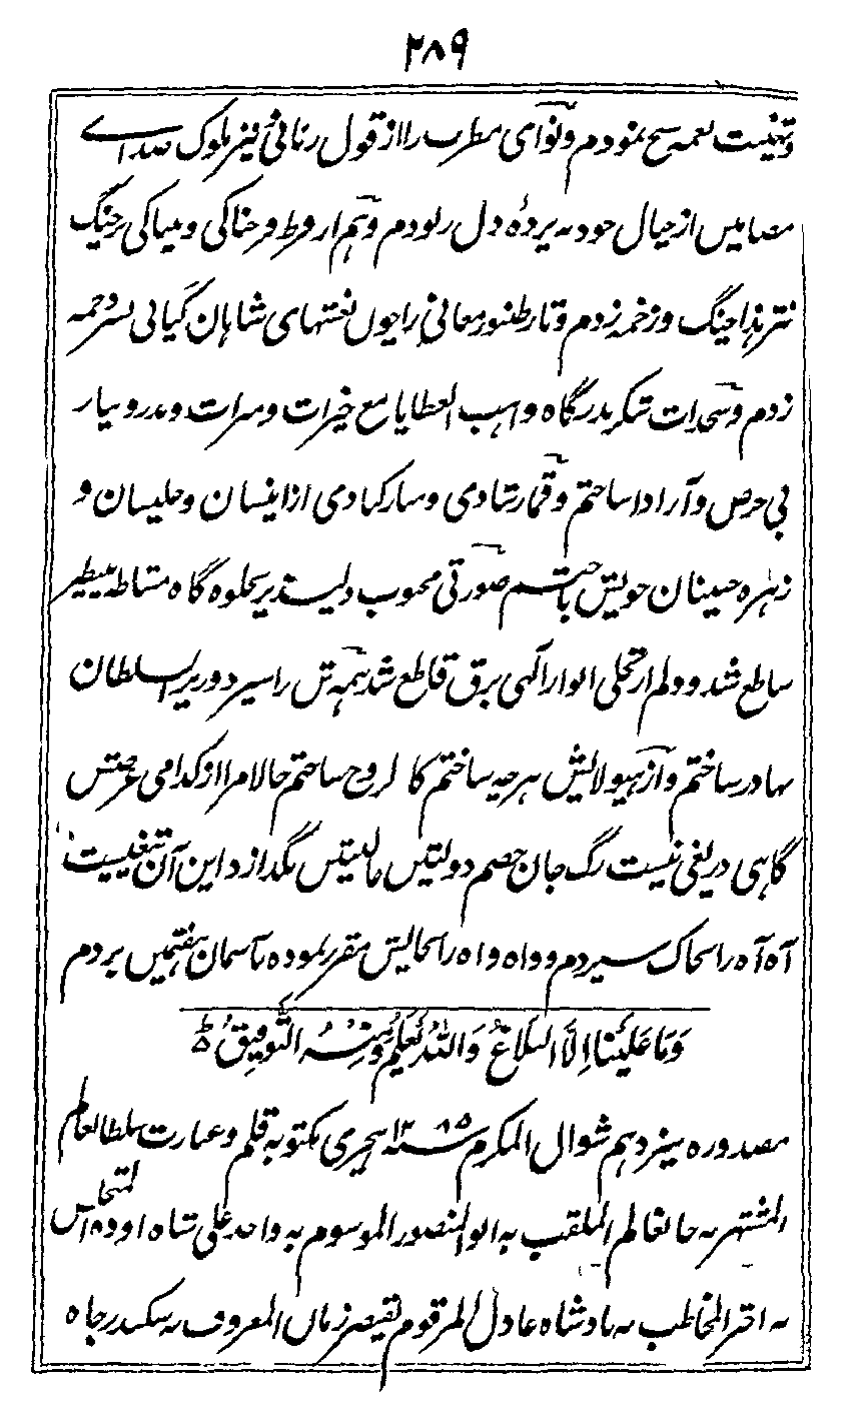 ۲۸۹
نغمه سنج نمودم ونوای مطرب را از قول ربانی نیز بلوک صدائے
مضامین از خیال خود به پردهٔ دل ربودم وهم از فرط فرحناکی وبیباکی بر چنگ
نثر هذا چنگ وزخمه زدم وتار طنبور معانی را چون نغمتهای شاهان کیانی بسر زخمه
زدم وسجدات شکر بدرگاه واهب العطایا مع خیرات ومبرات ونذر ونیاز
بی حرص وآز ادا ساختم وقمار شادی ومبارکبادی از انیسان وجلیسان و
زهره جبینان خویش باختم صورتی محبوب دلپذیر بجلوه گاه مشاطه بینظیر
ساطع شد ودلم از تجلی انوار الهی برق قاطع شد همه تن را سیر دوربین السلطان
بهادر ساختم واز هیولایش هرچه ساختم کالروح ساختم حالا مرا از کدامی غرضش
گاهی دریغی نیست رگ جان خصم دولتش مالیتش بگدازد این آن تیغیست
آه آه را بخاک سپردم وواه واه را بجایش مقرر نموده تا آسمان هفتمین بردم
وَمَا عَلَيْنَا اِلَّا الْبَلَاغُ وَاللّٰهُ يَعْلَمُ وَمِنْهُ التَّوْفِيقُ
مصدوره سیزدهم شوال المکرم سنه ۱۲۸۵ هجری مکتوبه قلم وعبارت سلطان عالم
المشتهر به جانعالم الملقب به ابوالمنصور الموسوم به واجد علی شاه اوده المتخلص
به اختر المخاطب به بادشاه عادل المرقوم بقیصر زمان المعروف به سکندر جاه